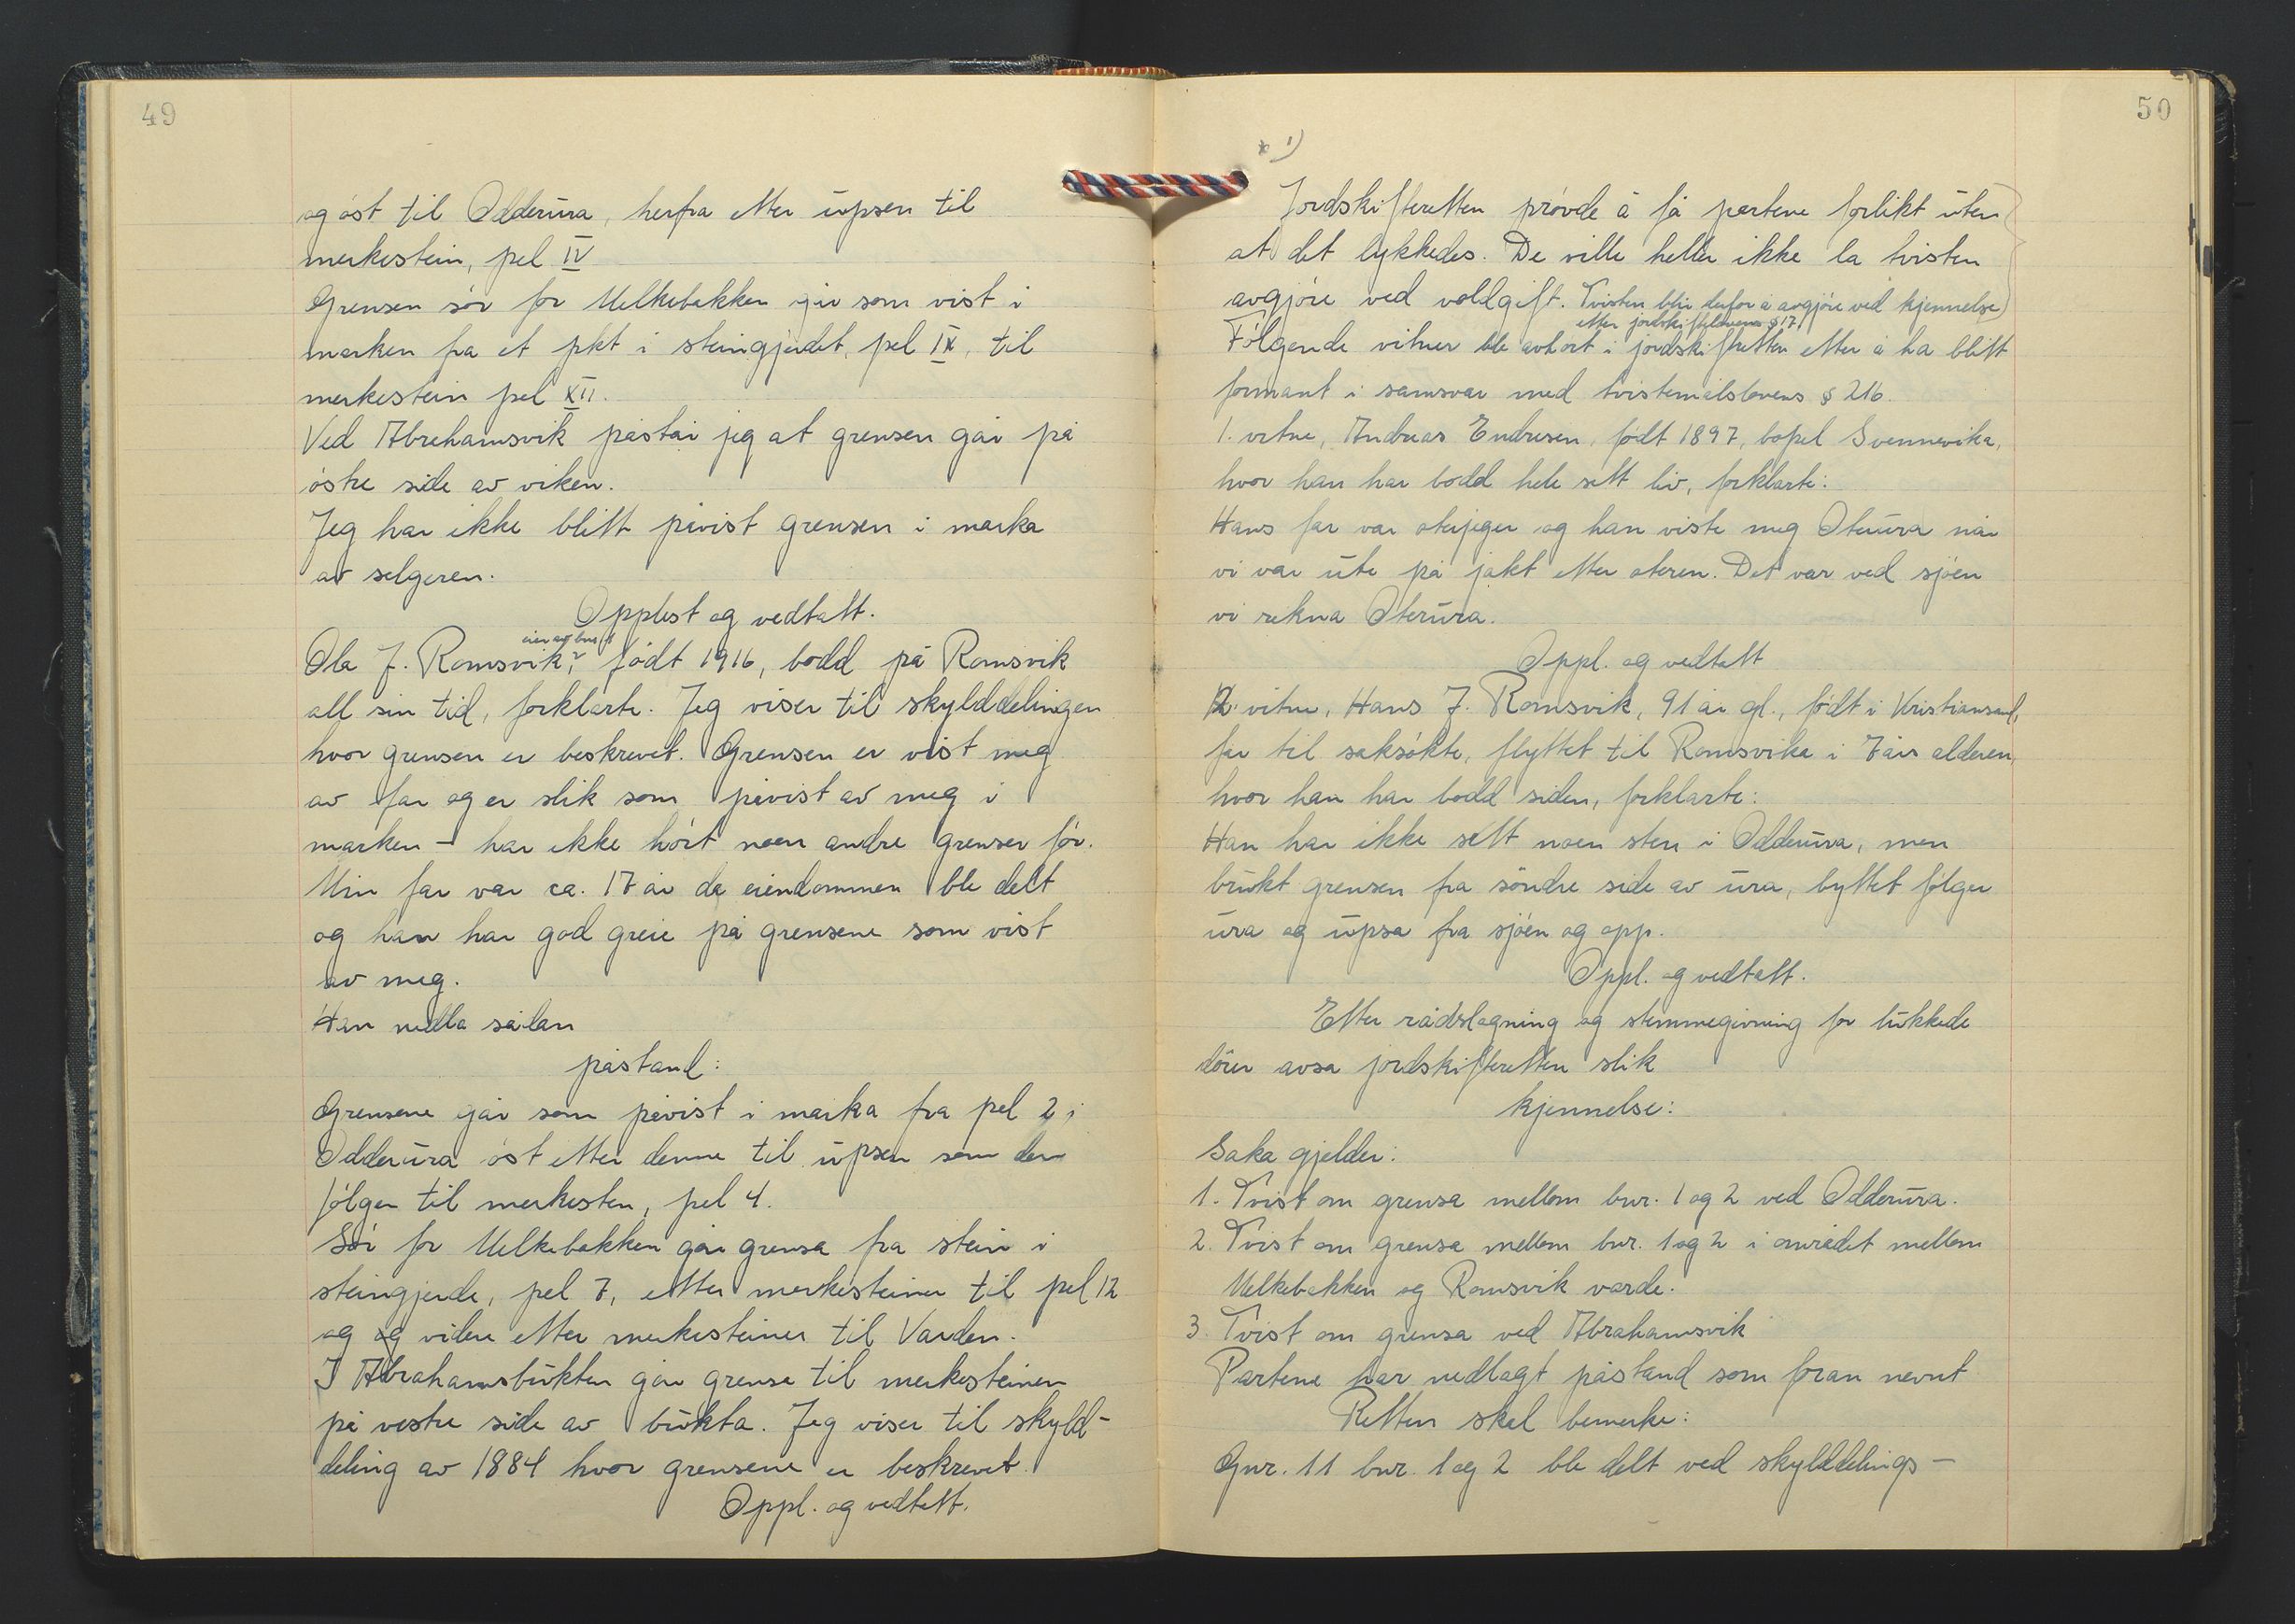 49
og øst til Odderura, herfra etter upsen til
merkestein, pel IV
Grensen sør for Melkebakken går som vist i
marken fra et pkt i steingjerdet, pel IX, til
merkestein pel XII.
Ved Abrahamsvik påstår jeg at grensen går på
østre side av viken.
Jeg har ikke blitt påvist grensen i marka
av selgeren.
Opplest og vedtatt.
eier av bnr
Ola J. Romsvik, født 1916, bodd på Romsvik
all sin tid, forklarte. Jeg viser til skylddelingen
hvor grensen er beskrevet. Grensen er vist meg
av far og er slik som påvist av meg i
marken – har ikke hørt noen andre grenser før.
Min far var ca. 17 år da eiendommen ble delt
og han har god greie på grensene som vist
av meg.
Han nedla sålan
påstand:
Grensene går som påvist i marka fra pel 2 i
Odderura øst etter denne til upsen som den
følger til merkesten, pel 4.
Sør for Melkebakken går grensa fra stein i
steingjerde, pel 7, etter merkesteiner til pel 12
og og videre etter merkesteiner til Varden.
I Abrahamsbukten går grense til merkesteinen
på vestre side av bukta. Jeg viser til skyld-
deling av 1884 hvor grensene er beskrevet.
Oppl. og vedtatt.
50
* 1)
Jordskifteretten prøvde å få partene forlikt uten
at det lykkedes. De ville heller ikke la tvisten
avgjøre ved voldgift. Tvisten blir derfor å avgjøre ved kjennelse
etter jordskiftelovens § 17
Følgende vitner ble avhørt i jordskifteretten etter å ha blitt
formant i samsvar med tvistemålslovens § 216.
1. vitne, Andreas Endresen, født 1897, bopel Svennevika,
hvor han har bodd hele sitt liv, forklarte:
Hans far var oterjeger og han viste meg Oterura når
vi var ute på jakt etter oteren. Det var ved sjøen
vi rekna Oterura.
Oppl. og vedtatt
2. vitne, Hans J. Romsvik, 91 år gl., født i Kristiansand,
far til saksøkte, flyttet til Romsvika i 7 års alderen,
hvor han har bodd siden, forklarte:
Han har ikke sett noen sten i Odderura, men
brukt grensen fra søndre side av ura, byttet følger
ura og upsa fra sjøen og opp.
Oppl. og vedtatt.
Etter rådslagning og stemmegivning for lukkede
dører avsa jordskifteretten slik
kjennelse:
Saka gjelder:
1. Tvist om grensa mellom bnr. 1 og 2 ved Odderura.
2. Tvist om grensa mellom bnr. 1 og 2 i området mellom
Melkebakken og Romsvik varde.
3. Tvist om grensa ved Abrahamsvik
Partene har nedlagt påstand som foran nevnt
Retten skal bemerke:
Gnr. 11 bnr. 1 og 2 ble delt ved skylddelings-